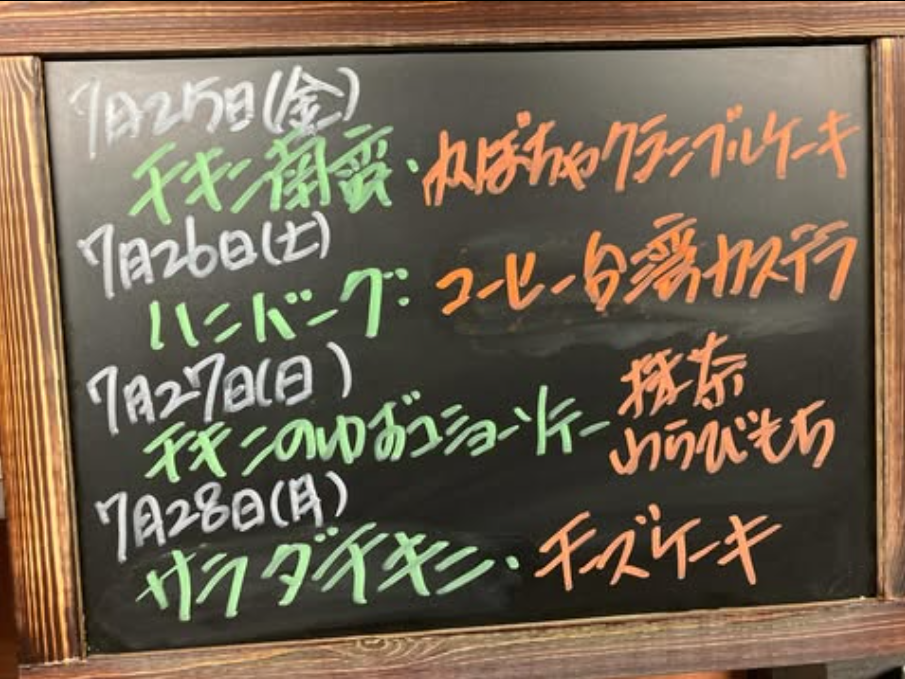 7月25日(金)
チキン南蛮・かぼちゃクランブルケーキ
7月26日(土)
ハンバーグ・コーヒー台湾カステラ
7月27日(日)
チキンのゆずコショーソテー 抹茶
わらびもち
7月28日(月)
サラダチキン・チーズケーキ